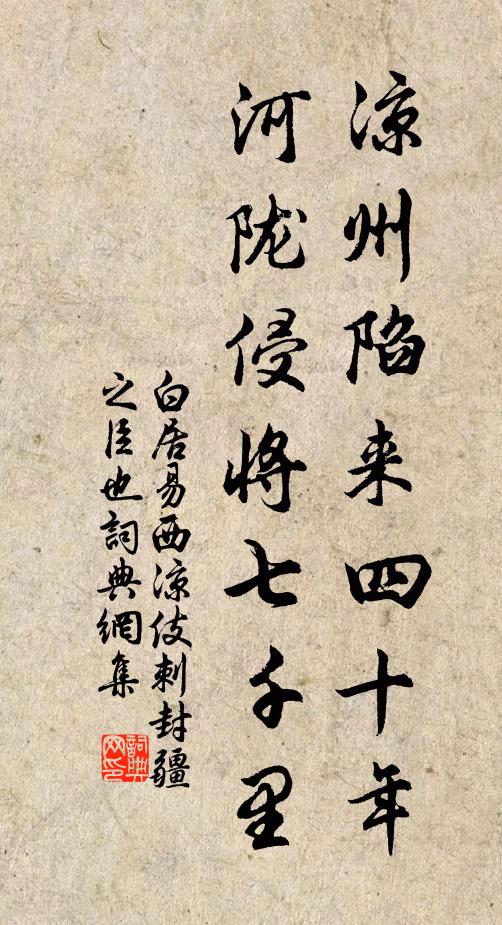 凉州陷来四十年
河陇侵将七千里
白居易西凉伎刺封疆
之臣也詞典網集
詞典
网印